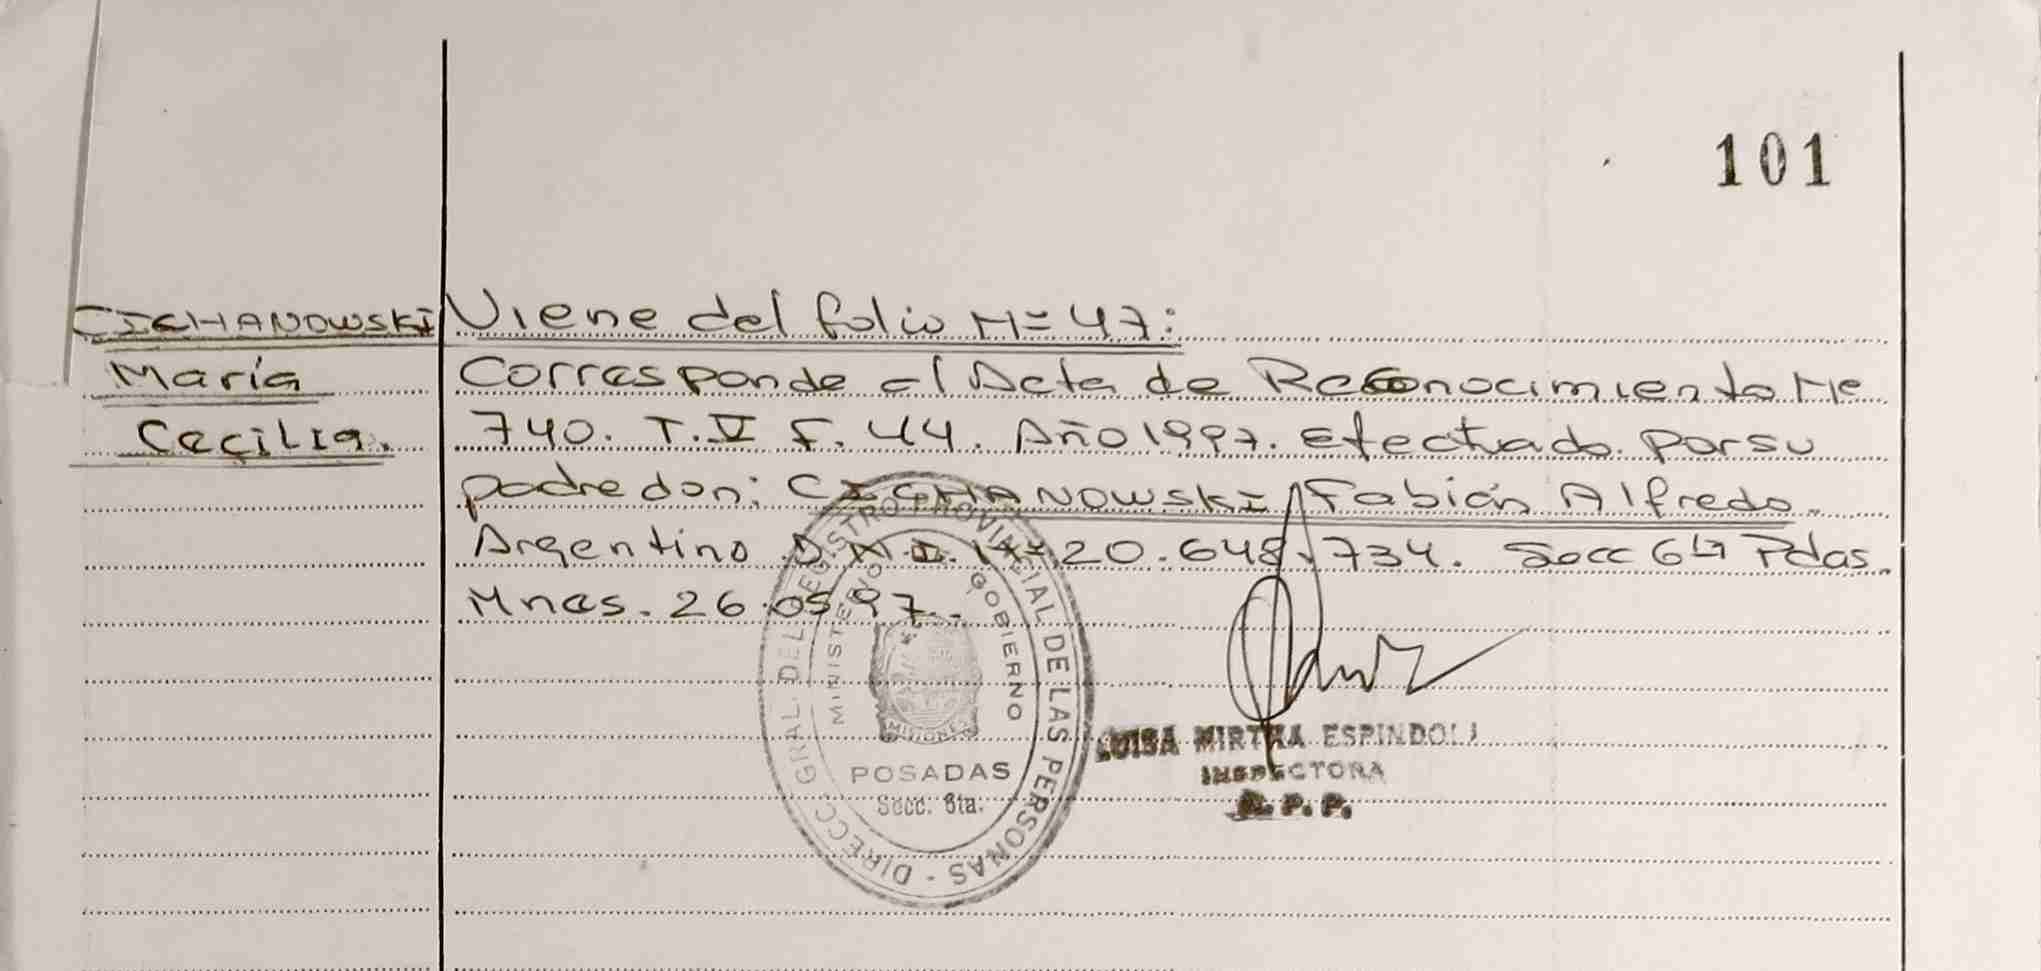 101
CICHANOWSKI
María
Cecilia.
Viene del folio Nº 47:
Corresponde al Acta de Reconocimiento Nº
740. T. V F. 44. Año 1997. Efectuado por su
padre don: CICHANOWSKI Fabián Alfredo.
Argentino D.N.I. Nº 20.648.734. Secc 6ta Pdas.
Mnes. 26.05 97.
DIRECC. GRAL. DEL REGISTRO PROVINCIAL DE LAS PERSONAS -
MINISTERIO GOBIERNO
MISIONES
POSADAS
Secc. 6ta.
LUISA MIRTHA ESPINDOLA
INSPECTORA
R. P. P.